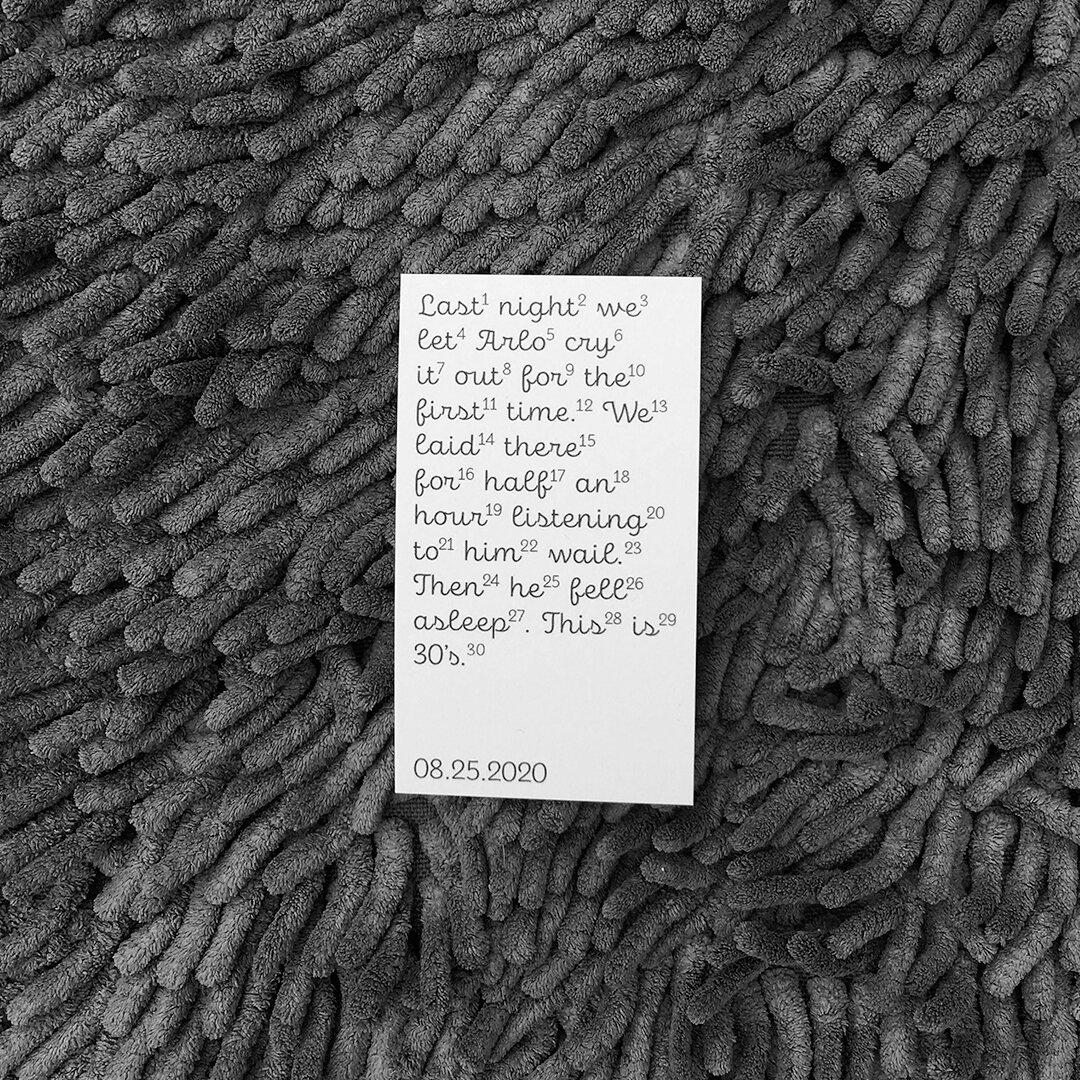 Last¹ night² we³
let⁴ Arlo⁵ cry⁶
it⁷ out⁸ for⁹ the¹⁰
first¹¹ time.¹² We¹³
laid¹⁴ there¹⁵
for¹⁶ half¹⁷ an¹⁸
hour¹⁹ listening²⁰
to²¹ him²² wail.²³
Then²⁴ he²⁵ fell²⁶
asleep²⁷. This²⁸ is²⁹
30's.³⁰
08.25.2020